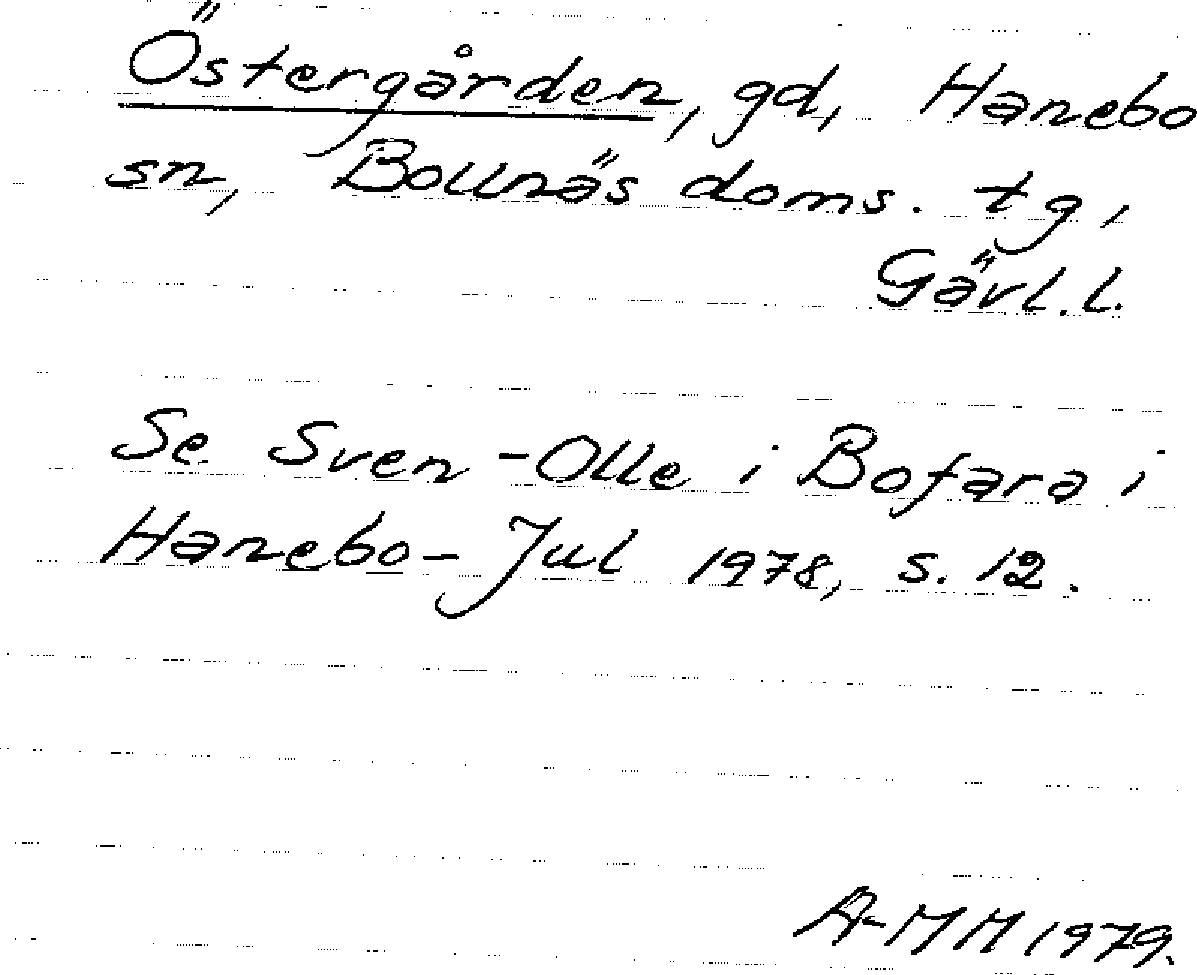 Östergården, gd, Hanebo
sn, Bollnäs doms. tg,
Gävl. l.
Se Sven-Olle i Bofara i
Hanebo-Jul 1978, s. 12.
A-MM 1979.